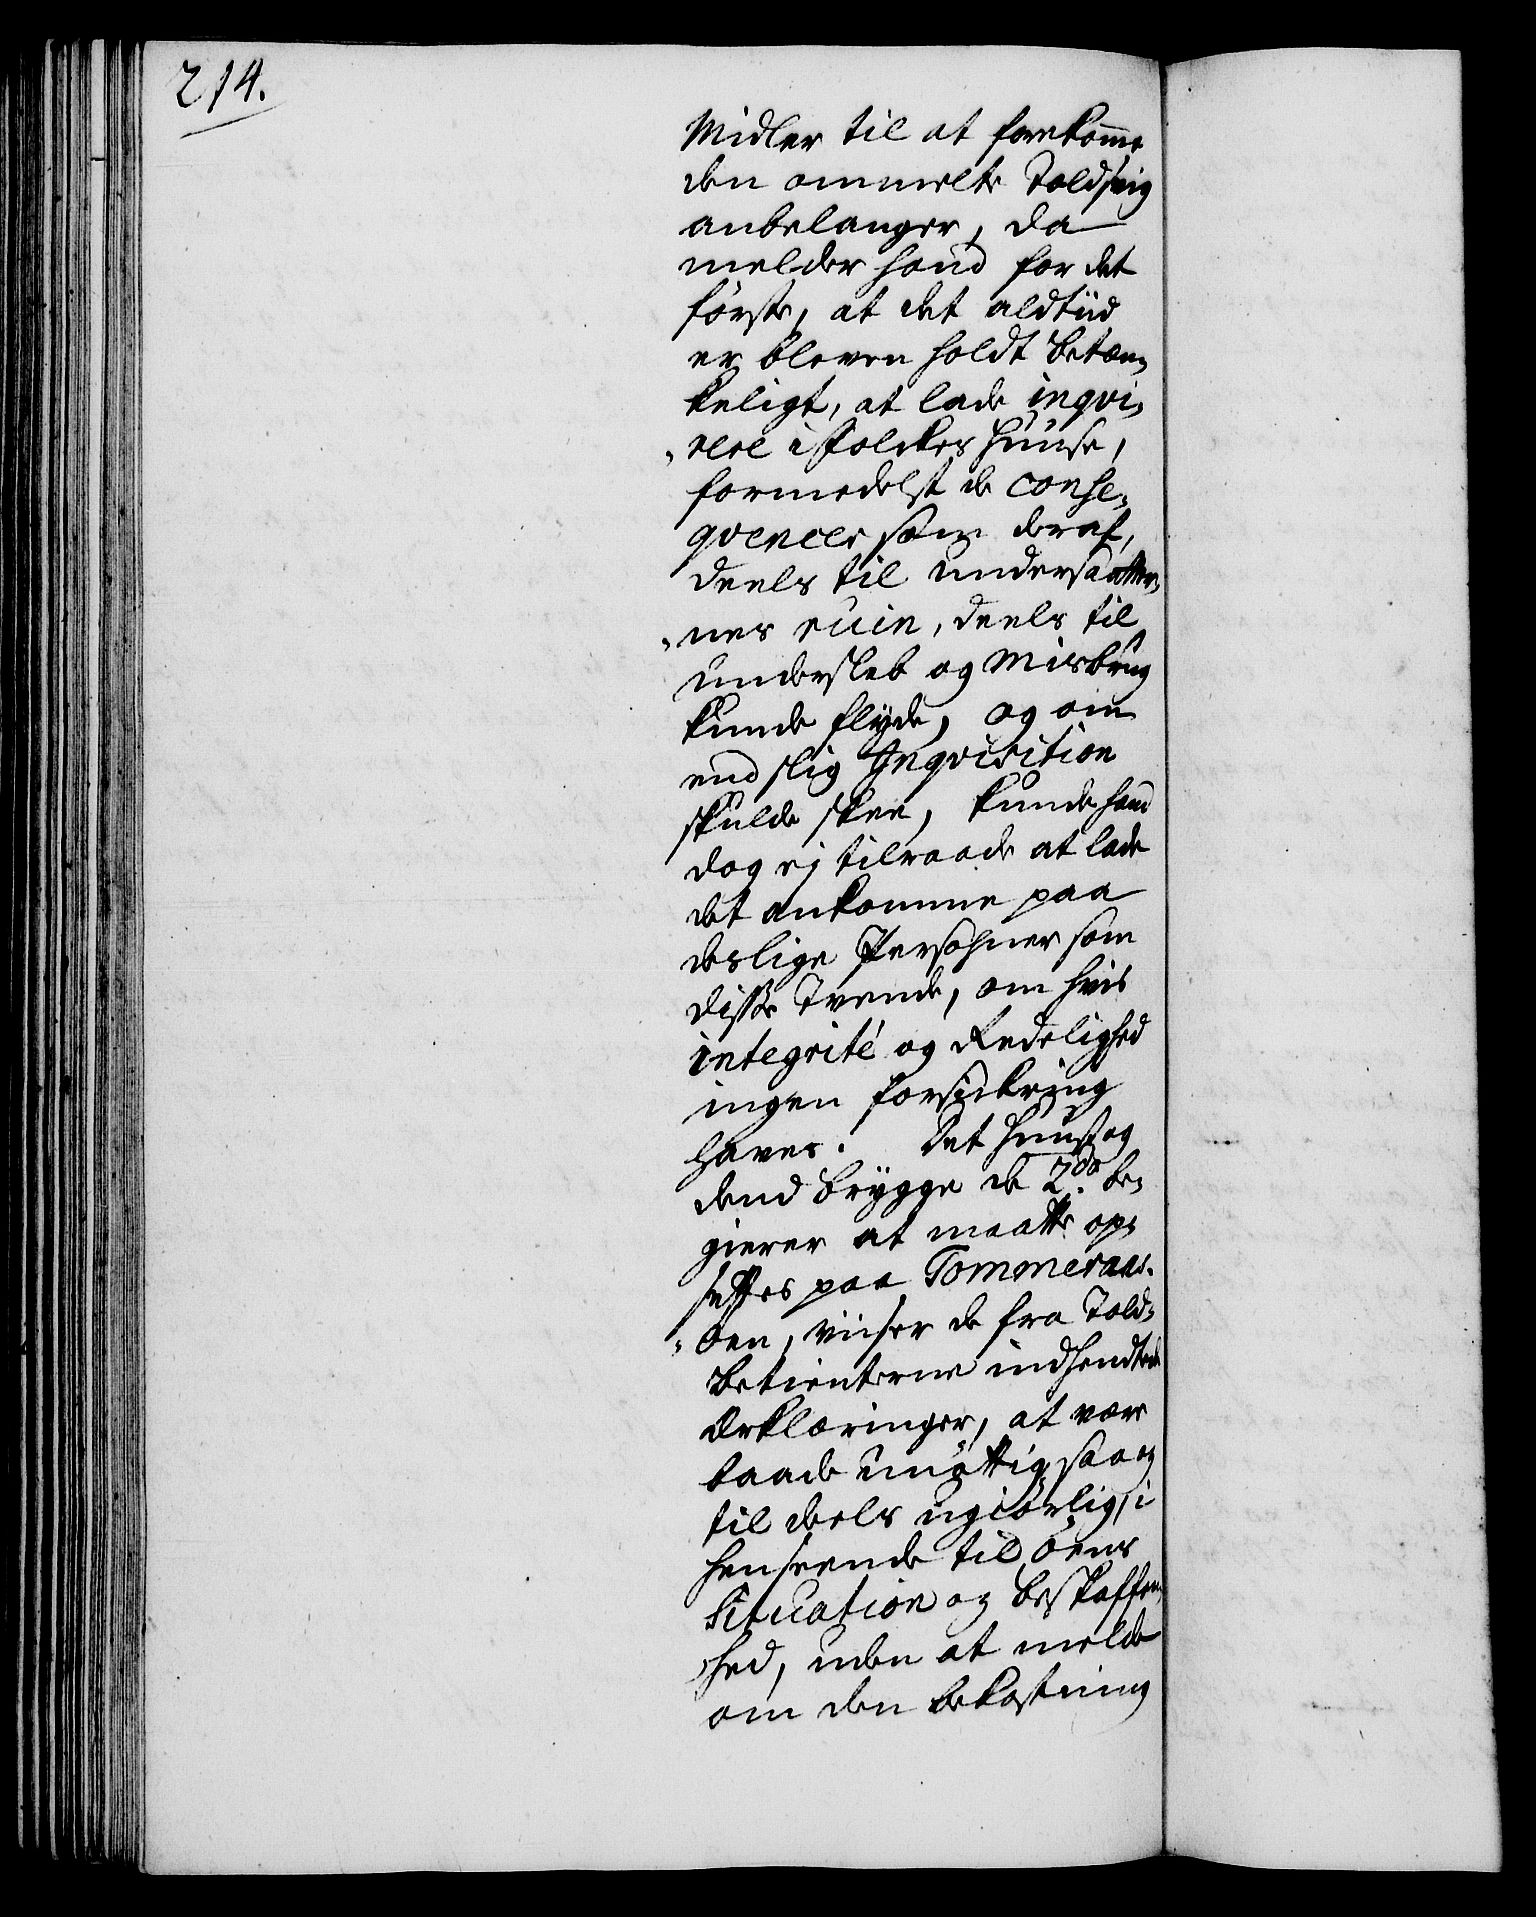 214.
Midler til at forekom̄e
den ommelte Toldsvig
anbelanger, da
melder hand for det
förste, at det aldtiid
er bleven holdt betæn„
keligt, at lade inqvi„
„rere i Folckes Huuse,
formedelst de conse„
qvencer som deraf,
deels til Undersaatter„
„nes ruin, deels til
Undersleb og Misbrug
kunde flyde, og om
end slig Inqvisition
skulde skee, kunde hand
dog ej tilraade at lade
det ankomme paa
deslige Persohner som
disse Tvende, om hvis
integrité og Redelighed
ingen forsickring
haves. Det Huus og
dend Brygge de 2de be„
gierer at maatte op„
settes paa Tommeraas„
„öen, viiser de fra Told„
Betienterne indhendtede
Erklæringer, at være
baade unöttig saa og
til deels ugiörlig, i
henseende til Öens
Situation og Beskaffen„
„hed, uden at melde
om den bekostning